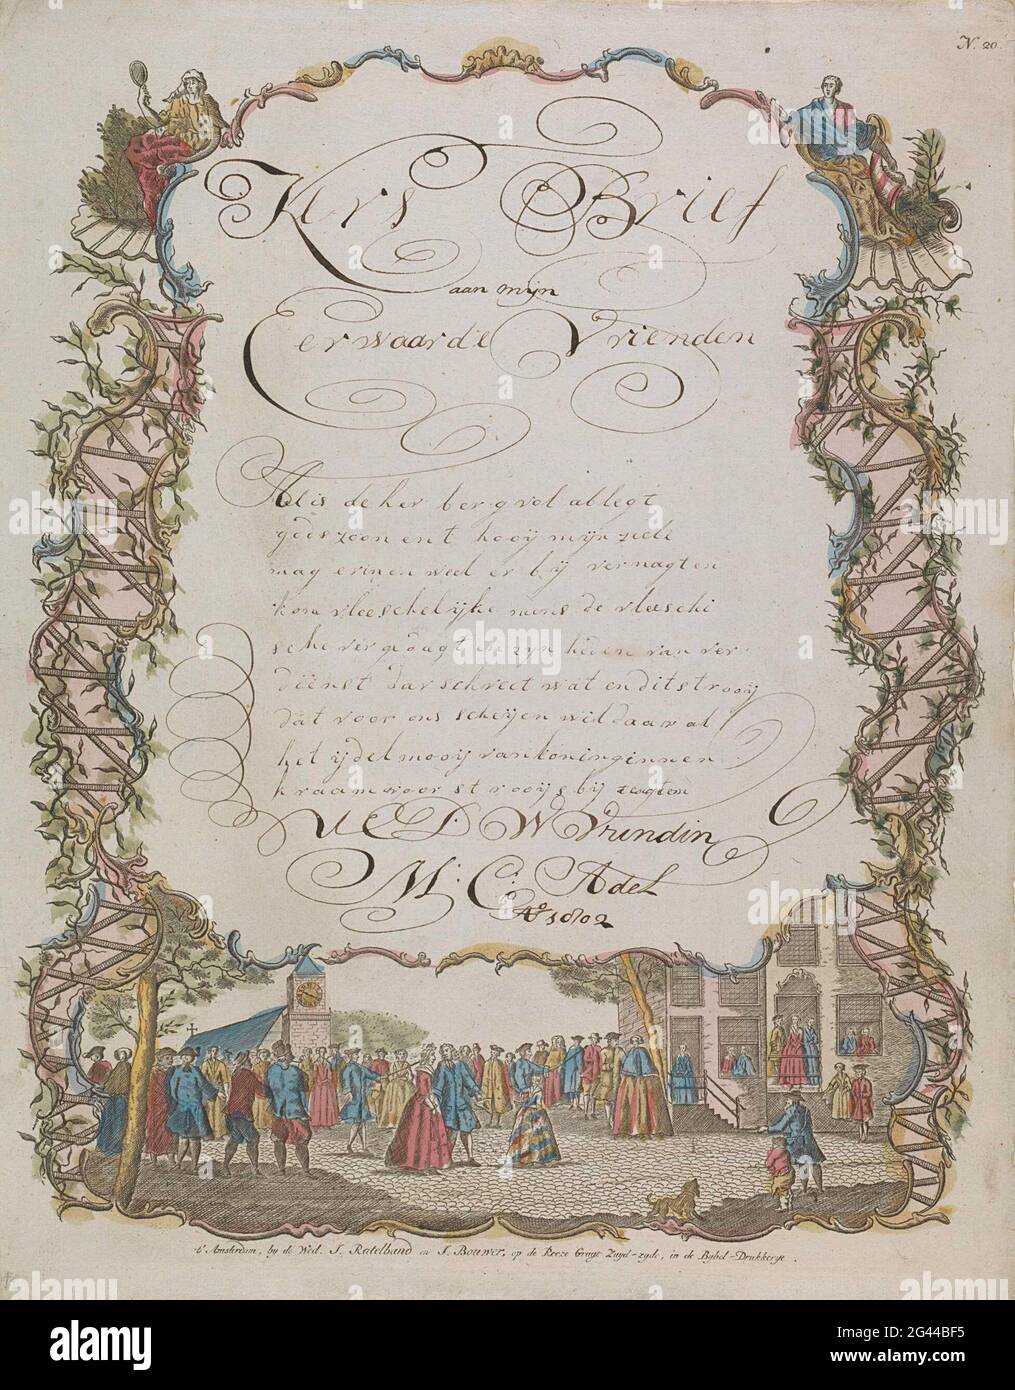 N. 20.
Kers Brief
aan mijn
Eerwaarde Vrienden
Al is de her berg vol al legt
gods zoon en t hooij mijn ziele
mag er in en weel er bij vernagten
kom vleeschelijke mens de vleeschi
sche zijn heden van ver
dienst Dar schreet wat en dit strooij
dat voor ons scheijen wil daar al
het ijdel mooij van koninginnen
kraam voor strooijs bij zagten
U E D W Vrindin
M: C: Adel
Ao 1802
t'Amsterdam, by de Wed. J. Ratelband en J. Bouwer, op de Keeze Gragt Zuyd-zyde, in de Bybel-Drukkerye.
alamy
Image ID: 2G44BF5
www.alamy.com